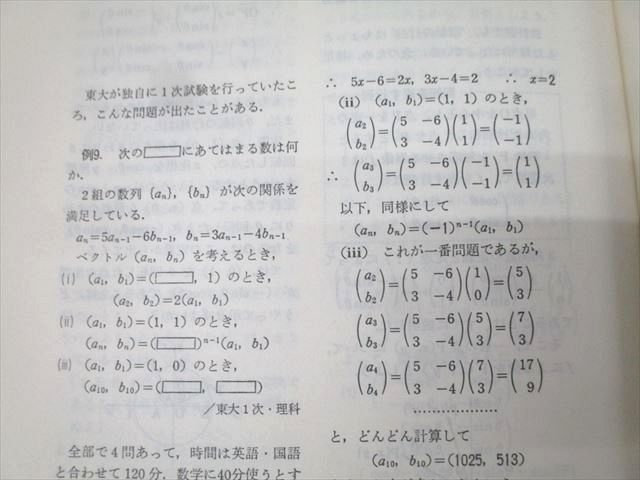 東大が独自に1次試験を行っていたこ
ろ，こんな問題が出たことがある．
例9. 次の□にあてはまる数は何
か．
2組の数列 {aₙ}, {bₙ} が次の関係を
満足している．
aₙ=5aₙ₋₁−6bₙ₋₁, bₙ=3aₙ₋₁−4bₙ₋₁
ベクトル (aₙ, bₙ) を考えるとき，
(i) (a₁, b₁)=(□, 1) のとき，
(a₂, b₂)=2(a₁, b₁)
(ii) (a₁, b₁)=(1, 1) のとき，
(aₙ, bₙ)=(□)ⁿ⁻¹(a₁, b₁)
(iii) (a₁, b₁)=(1, 0) のとき，
(a₁₀, b₁₀)=(□, □)
／東大1次・理科
全部で4問あって，時間は英語・国語
と合わせて120分．数学に40分使うとす
∴ 5x−6=2x, 3x−4=2 ∴ x=2
(ii) (a₁, b₁)=(1, 1) のとき，
(a₂ b₂)=(5 −6 3 −4)(1 1)=(−1 −1)
∴ (a₃ b₃)=(5 −6 3 −4)(−1 −1)=(1 1)
以下，同様にして
(aₙ, bₙ)=(−1)ⁿ⁻¹(a₁, b₁)
(iii) これが一番問題であるが，
(a₂ b₂)=(5 −6 3 −4)(1 0)=(5 3)
(a₃ b₃)=(5 −6 3 −4)(5 3)=(7 3)
(a₄ b₄)=(5 −6 3 −4)(7 3)=(17 9)
…………………
と，どんどん計算して
(a₁₀, b₁₀)=(1025, 513)